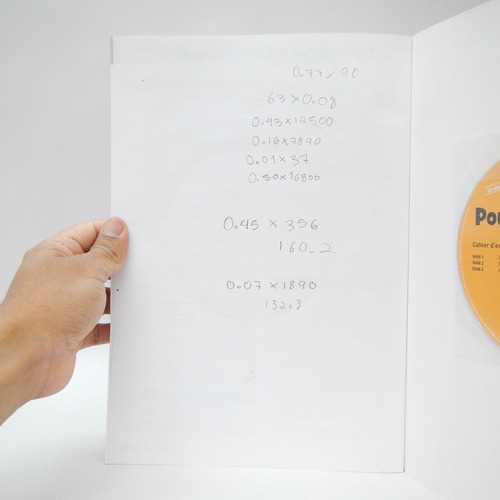 0.77 x 90
63 x 0.08
0.93 x 12500
0.16 x 7890
0.01 x 37
0.50 x 16800
0.45 x 356
160.2
0.07 x 1890
132.3
Pou
Cahier d'e